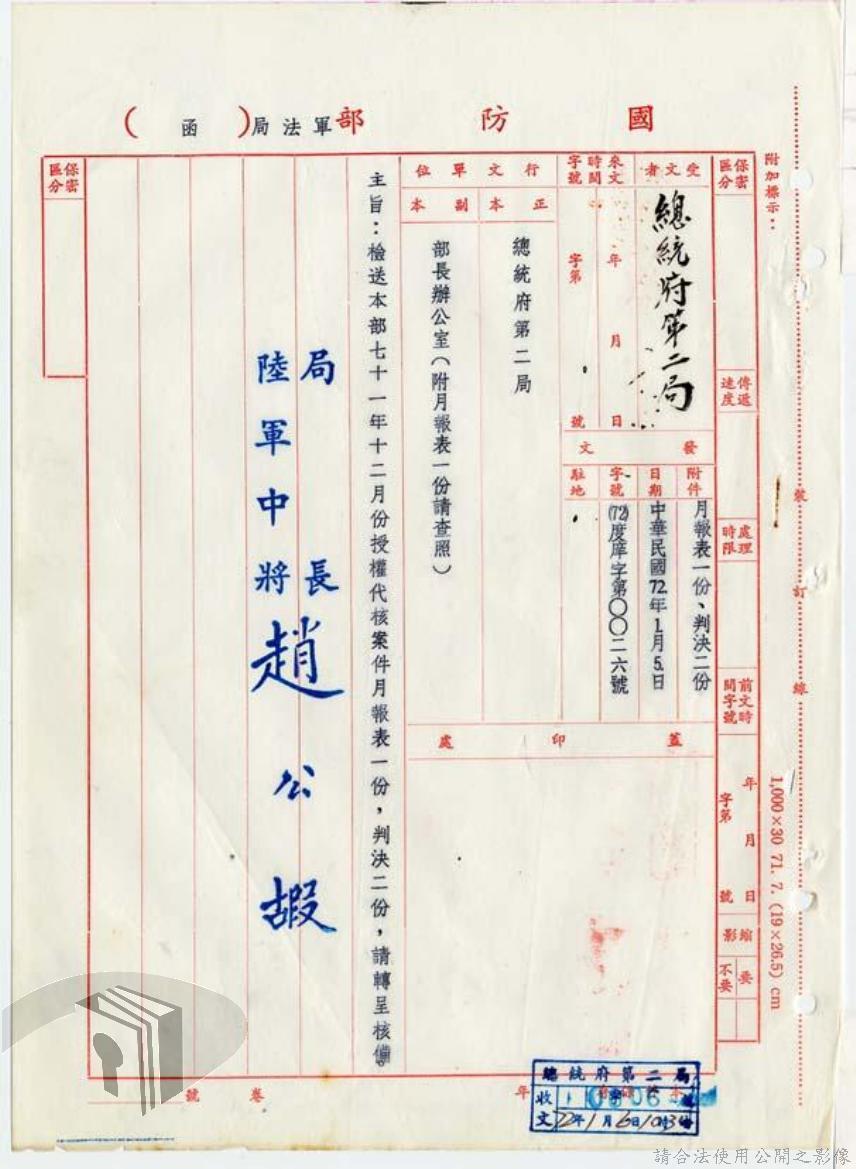 國防部軍法局(函)
附加標示：
保密區分
傳遞速度
處理時限
前文時間字號
年月日
字第號
縮影
要
不要
裝訂線
1,000×30 71. 7. (19×26.5) cm
受文者
總統府第二局
來文時間字號
年月日
字第號
發文
附件
月報表一份、判決二份
日期
中華民國72年1月5日
字號
(72)度庠字第〇〇二六號
駐地
行文單位
正本
總統府第二局
副本
部長辦公室（附月報表一份請查照）
蓋印處
主旨：檢送本部七十一年十二月份授權代核案件月報表一份，判決二份，請轉呈核備。
局長
陸軍中將趙公嘏
保密區分
總統府第二局
收文
72年1月6日10時
年
卷號
請合法使用公開之影像